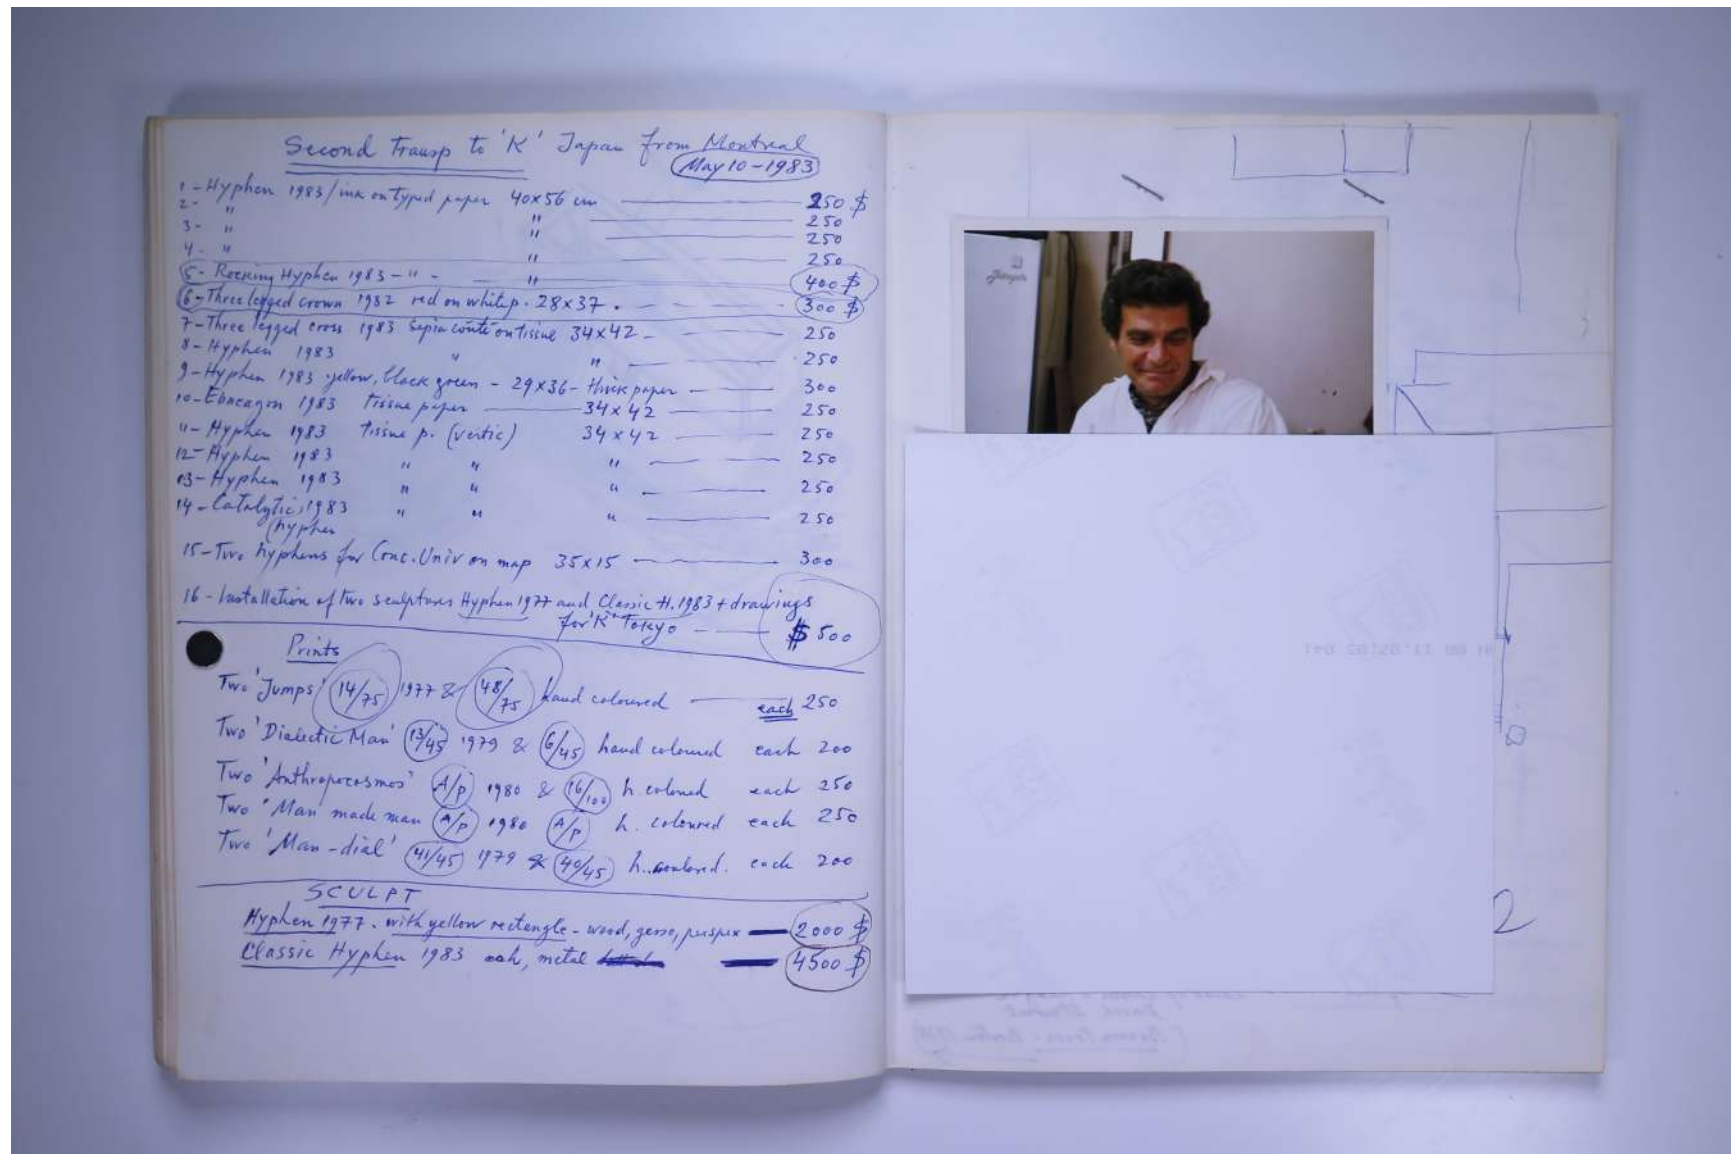 Second Transp to 'K' Japan from Montreal
May 10-1983
1 - Hyphen 1983 / ink on typed paper 40x56 cm 250 $
2 - " " 250
3 - " " 250
4 - " " 250
5 - Rocking Hyphen 1983 - " - " 400 $
6 - Three legged crown 1982 red on white p. 28x37 . 300 $
7 - Three legged cross 1983 Sepia conté on tissue 34x42 - 250
8 - Hyphen 1983 " " 250
9 - Hyphen 1983 yellow, black green - 29x36 - thick paper 300
10 - 1983 Tissue paper 34x42 250
11 - Hyphen 1983 Tissue p. (vertic) 34x42 250
12 - Hyphen 1983 " " " 250
13 - Hyphen 1983 " " " 250
14 - Catalytic 1983 " " " 250
(hyphen
15 - Two hyphens for Conc. Univ on map 35x15 300
16 - Installation of two sculptures Hyphen 1977 and Classic H. 1983 + drawings
for 'K' Tokyo $ 500
Prints
Two 'Jumps' 14/75 1977 & 48/75 hand coloured each 250
Two 'Dialectic Man' 13/45 1979 & 6/45 hand coloured each 200
Two 'Anthropocosmos' A/p 1980 & 16/100 h. colored each 250
Two 'Man made man A/p 1980 A/p h. coloured each 250
Two 'Man-dial' 41/45 1979 & 40/45 h. coulored. each 200
SCULPT
Hyphen 1977 - with yellow rectangle - wood, gesso, perspex 2000 $
Classic Hyphen 1983 oak, metal 4500 $
2